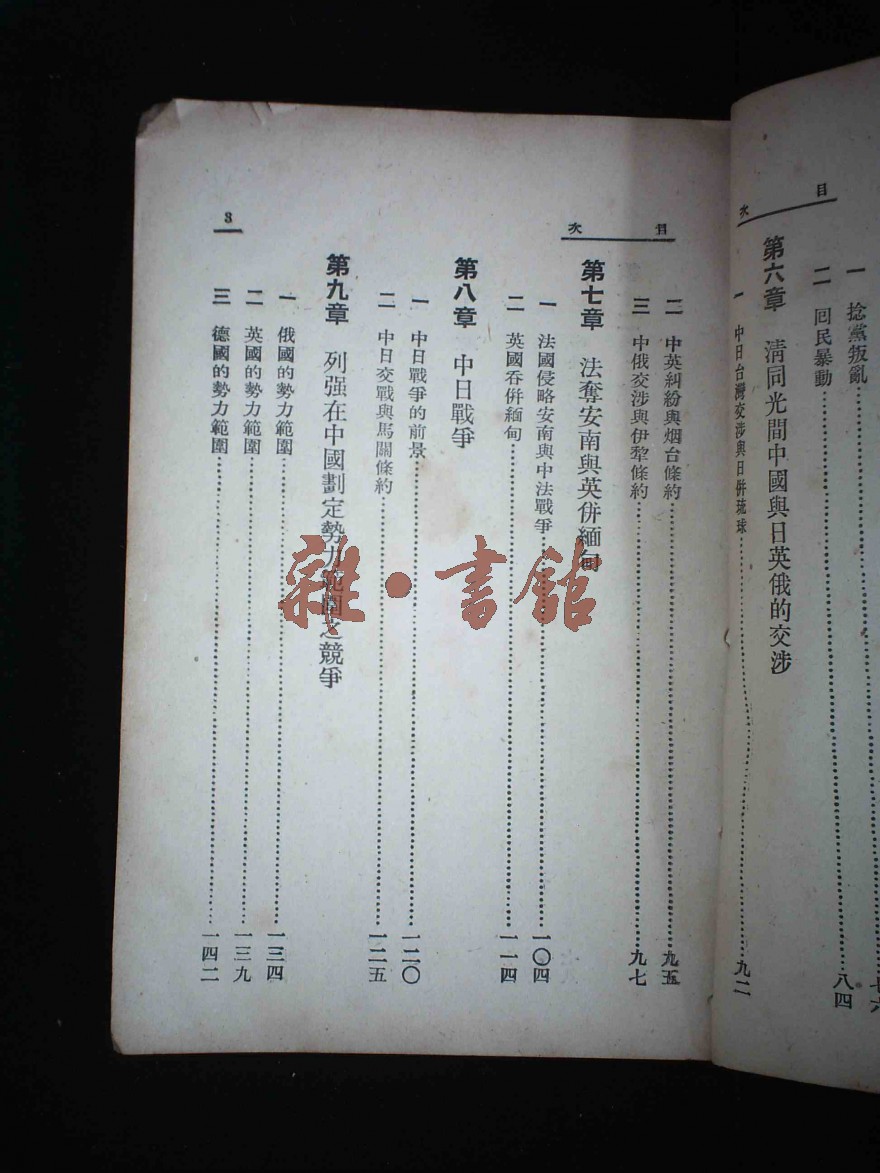 目 次
一 捻黨叛亂……七六
二 回民暴動……八四
第六章 淸同光間中國與日英俄的交涉
一 中日台灣交涉與日併琉球……九二
目 次
二 中英糾紛與烟台條約……九五
三 中俄交涉與伊犂條約……九七
第七章 法奪安南與英併緬甸
一 法國侵略安南與中法戰爭……一〇四
二 英國吞併緬甸……一一四
第八章 中日戰爭
一 中日戰爭的前景……一二〇
二 中日交戰與馬關條約……一二五
第九章 列强在中國劃定勢力範圍之競爭
一 俄國的勢力範圍……一三四
二 英國的勢力範圍……一三九
三 德國的勢力範圍……一四二
3
雜·書館